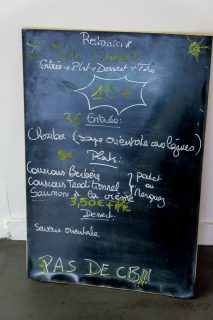 Restaurant
Entrée + Plat + Dessert + Thé
10€
3€ Entrée:
Chorba (soupe orientale aux légumes)
8€ Plats:
Couscous Berbère
Couscous Traditionnel } poulet ou Merguez
Saumon à la crème
3,50€
Dessert:
Saveur orientale
PAS DE CB !!!